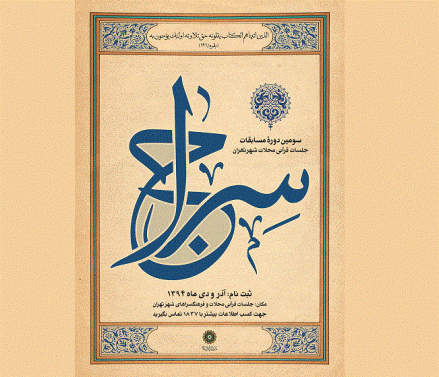 الذین اتیناهم الکتاب یتلونه حق تلاوته اولئک یومنون به
(بقره/۱۲۱)
سراج
سومین دورهٔ مسابقات
جلسات قرآنی محلات شهر تهران
ثبت نام: آذر و دی ماه ۱۳۹۴
مکان: جلسات قرآنی محلات و فرهنگسراهای شهر تهران
جهت کسب اطلاعات بیشتر با ۱۸۳۷ تماس بگیرید